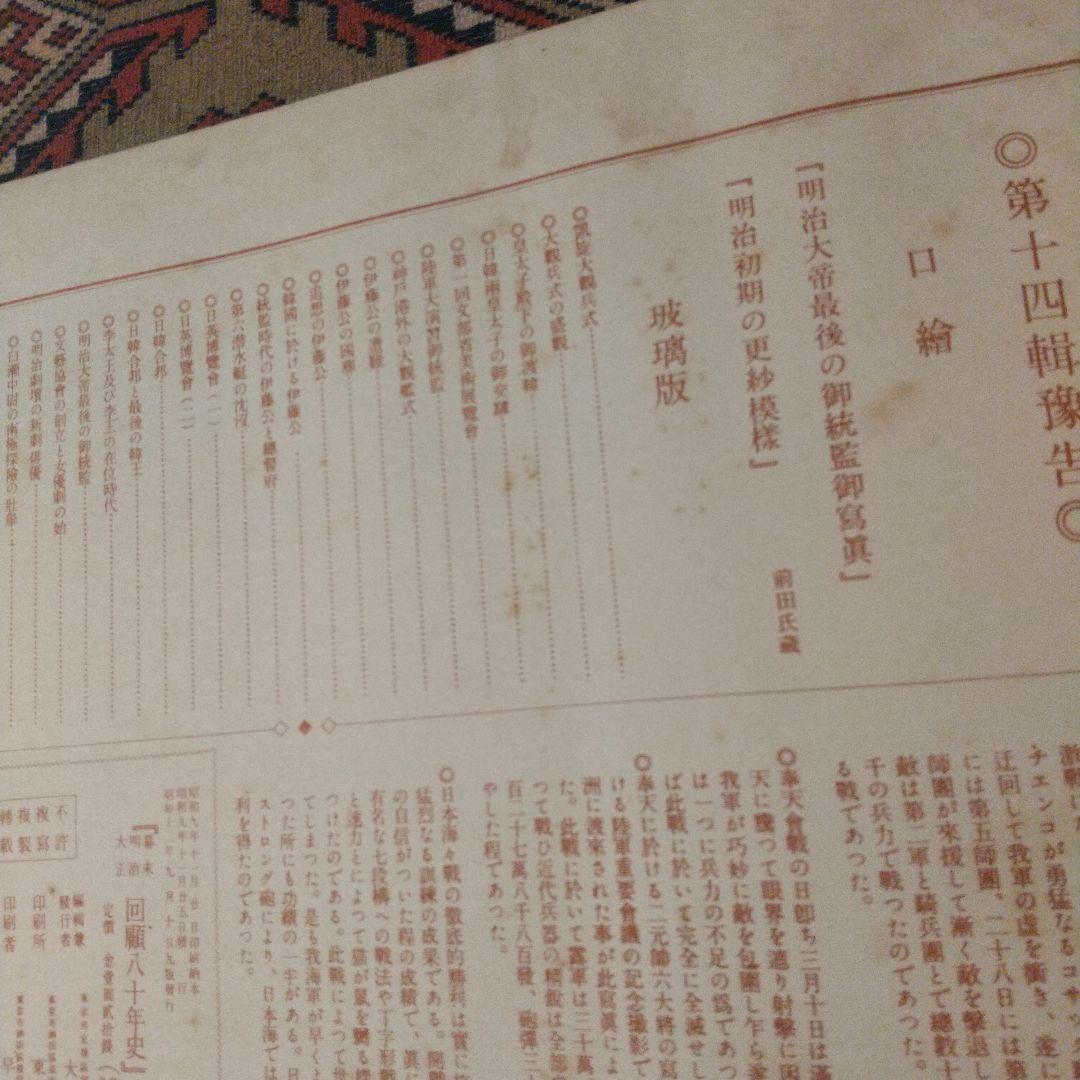 ◎第十四輯豫吿◎
口繪
『明治大帝最後の御統監御寫眞』
『明治初期の更紗模樣』
前田氏藏
玻璃版
◎凱旋大觀兵式
◎大觀兵式の盛觀
◎皇太子殿下の御渡韓
◎日韓兩皇太子の御交驩
◎第一回文部省美術展覽會
◎陸軍大演習御統監
◎神戶港外の大觀艦式
◎伊藤公の遭難
◎伊藤公の國葬
◎追想の伊藤公
◎韓國に於ける伊藤公
◎統監時代の伊藤公と總督府
◎第六潜水艇の沈沒
◎日英博覽會
◎日英博覽會
◎日韓合邦
◎日韓合邦と最後の韓王
◎李太王及び李王の在位時代
◎明治大帝最後の御統監
◎文藝協會の創立と女優劇の始
◎明治劇壇の新劇俳優
◎白瀨中尉の南極探險の壯擧
激戰は
チエンコが勇猛なるコサック
迂回して我軍の虛を衝き、遂に
には第五師團、二十八日には第
師團が來援して漸く敵を擊退し
敵は第二軍と騎兵團とで總數十
千の兵力で戰つたのであつた。
る戰であつた。
◎奉天會戰の日卽ち三月十日は滿
天に騰つて眼界を遮り射擊に困
我軍が巧妙に敵を包圍し乍ら遂
は一つに兵力の不足の爲であつ
ば此戰に於いて完全に全滅せし
◎奉天に於ける二元帥六大將の寫
ける陸軍重要會議の記念撮影で
洲に渡來された事が此寫眞によ
た。此戰に於いて露軍は三十萬
つて戰ひ近代兵器の精銳は全部
百二十七萬八千八百發、砲彈三十
やした程であつた。
◎日本海々戰の徹底的勝利は實に
猛烈なる訓練の成果である。開戰
の自信がついた程の成績で、眞に
有名な七段構への戰法や丁字形戰
と速力とによつて猫が鼠を嬲る樣
つけたのである。此戰によつて世
てしまつた。是も我海軍が早くよ
つた所にも功績の一半がある。日
ストロング砲により、日本海では
利を得たのであつた。
昭和九年十一月廿日印刷納本
昭和九年十一月廿五日發行
昭和十年九月十日九版發行
『幕末明治大正回顧八十年史』
定價 金壹圓貳拾錢
編輯兼
發行者 大
印刷所 東
印刷者 早
不許
複寫
複製
轉載